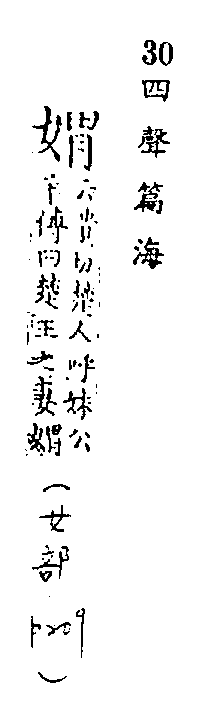 30四聲篇海
媦
于貴切楚人呼妹公
羊傳曰楚王之妻媦
(女部 P209)